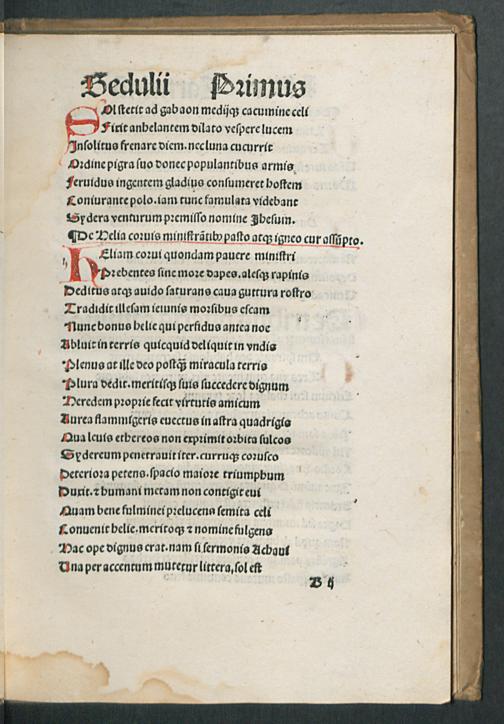 Sedulii Primus
Sol stetit ad gabaon medijqꝫ cacumine celi
Fixit anhelantem dilato vespere lucem
Insolitus frenare diem. nec luna cucurrit
Ordine pigra suo donec populantibus armis
Feruidus ingentem gladius consumeret hostem
Coniurante polo. iam tunc famulata videbant
Sydera venturum premisso nomine Jhesum.
¶De Helia coruis ministrātibꝰ pasto atqꝫ igneo cur assūpto.
HEliam corui quondam pauere ministri
Prebentes sine more dapes. alesqꝫ rapinis
Deditus atqꝫ auido saturans caua guttura rostro
Tradidit illesam ieiunis morsibus escam
Nunc bonus helie qui perfidus antea noe
Abluit in terris quicquid deliquit in vndis
Plenus at ille deo postqꝫ̄ miracula terris
Plura dedit. meritisqꝫ suis succedere dignum
Heredem proprie fecit virtutis amicum
Aurea flammigeris euectus in astra quadrigis
Qua leuis ethereos non exprimit orbita sulcos
Sydereum penetrauit iter. curruqꝫ corusco
Deteriora petens. spacio maiore triumphum
Duxit. ⁊ humani metam non contigit eui
Quam bene fulminei prelucens semita celi
Conuenit helie. meritoqꝫ ⁊ nomine fulgens
Hac ope dignus erat. nam si sermonis Achaui
Una per accentum mutetur littera, sol est
B ij